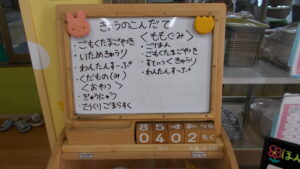 きょうのこんだて
・ごもくたまごやき
・いためきゅうり
・わんたんすーぷ
・くだもの(み)
<おやつ>
・ぎゅうにゅう
<ももぐみ>
・ごはん
・ごもくたまごやき
・すてぃっくきゅうり
・わんたんすーぷ
0402